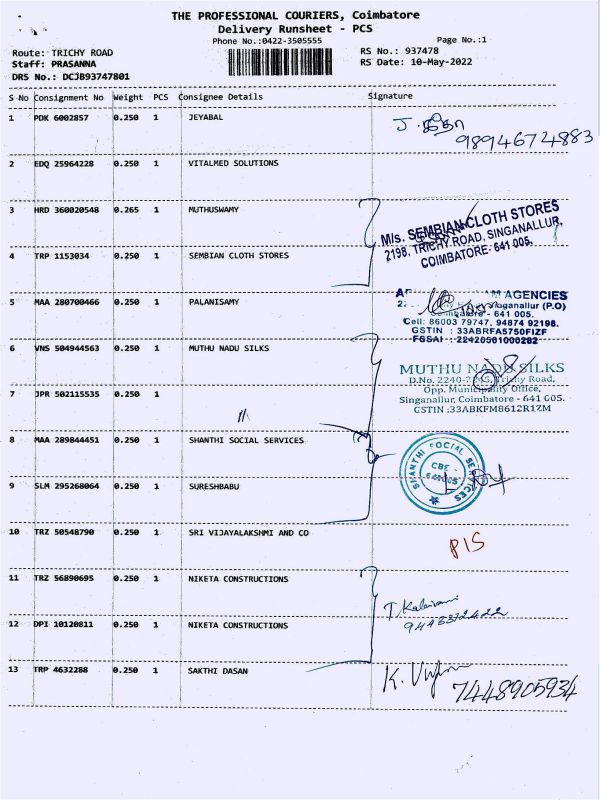 THE PROFESSIONAL COURIERS, Coimbatore
Delivery Runsheet - PCS
Phone No.:0422-3505555
Page No.:1
Route: TRICHY ROAD
RS No.: 937478
Staff: PRASANNA
RS Date: 10-May-2022
DRS No.: DCJB93747801
S No Consignment No Weight PCS Consignee Details Signature
1 PDK 6002857 0.250 1 JEYABAL
J.
9894674883
2 EDQ 25964228 0.250 1 VITALMED SOLUTIONS
3 HRD 360020548 0.265 1 MUTHUSWAMY
M/s. SEMBIAN CLOTH STORES
2198, TRICHY ROAD, SINGANALLUR,
COIMBATORE- 641 005.
4 TRP 1153034 0.250 1 SEMBIAN CLOTH STORES
5 MAA 280700466 0.250 1 PALANISAMY
AGENCIES
Singanallur (P.O)
Coimbatore - 641 005.
Cell: 86003 79747, 94874 92198.
GSTIN : 33ABRFA5750FIZF
FSSAI : 22420561000262
6 VNS 504944563 0.250 1 MUTHU NADU SILKS
MUTHU NADU SILKS
D.No. 2240- Trichy Road,
Opp. Municipality Office,
Singanallur, Coimbatore - 641 005.
GSTIN :33ABKFM8612R1ZM
7 JPR 502115535 0.250 1
8 MAA 289844451 0.250 1 SHANTHI SOCIAL SERVICES
SHANTHI SOCIAL SERVICES
CBE -
641005
9 SLM 295268064 0.250 1 SURESHBABU
10 TRZ 50548790 0.250 1 SRI VIJAYALAKSHMI AND CO
PIS
11 TRZ 56890695 0.250 1 NIKETA CONSTRUCTIONS
12 DPI 10120811 0.250 1 NIKETA CONSTRUCTIONS
13 TRP 4632288 0.250 1 SAKTHI DASAN
K.
7448905934